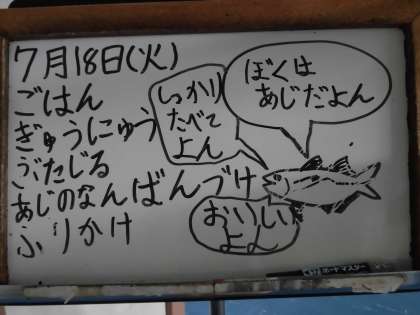 7月18日(火)
ごはん
ぎゅうにゅう
ぶたじる
あじのなんばんづけ
ふりかけ
しっかり
たべて
よん
ぼくは
あじだよん
おいしい
よん
ボードマスター